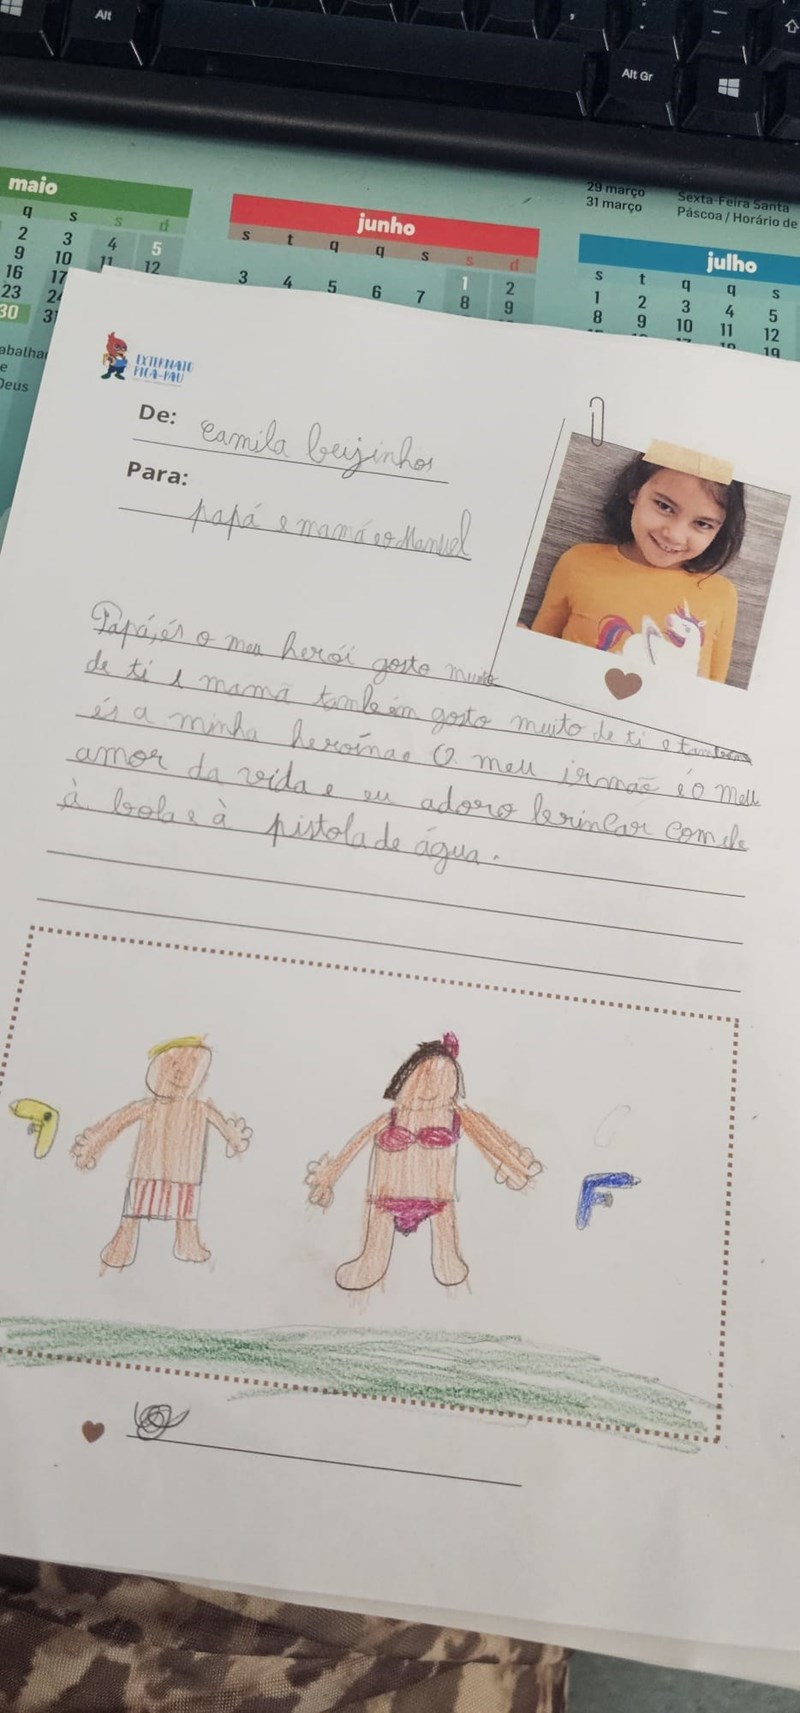 Alt
Alt Gr
maio
q s s d
2 3 4 5
9 10 11 12
16 17
23
30
junho
s t q q s s d
1 2
3 4 5 6 7 8 9
29 março Sexta-Feira Santa
31 março Páscoa / Horário de
julho
s t q q s
1 2 3 4 5
8 9 10 11 12
19
EXTERNATO
PICA-PAU
De: Camila beijinhos
Para:
papá e mamã e o Manuel
Papá, és o meu herói gosto muito
de ti e mamã também gosto muito de ti e também
és a minha heroína. O meu irmão é o meu
amor da vida e eu adoro brincar com ele
à bola e à pistola de água.